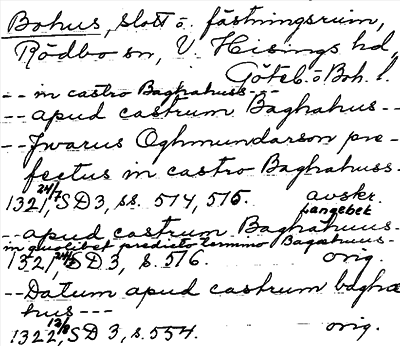 Bohus, slott o. fästningsruin,
Rödbo sn, V. Hisings hd,
Göteb. o Boh. l.
-- in castro Baghahuss --
-- apud castrum Baghahus --
-- Jwarus Oghmundarson pre-
fectus in castro Baghahuss.
1321 24/7, SD 3, ss. 574, 575. avskr.
pangebet
-- apud castrum Baghahuus-
in quolibet predicto termino Bagahuus-
1321 24/7 SD 3, s. 576. orig.
-- Datum apud castrum bagha
hus ---
1322 12/8, SD 3, s. 554. orig.